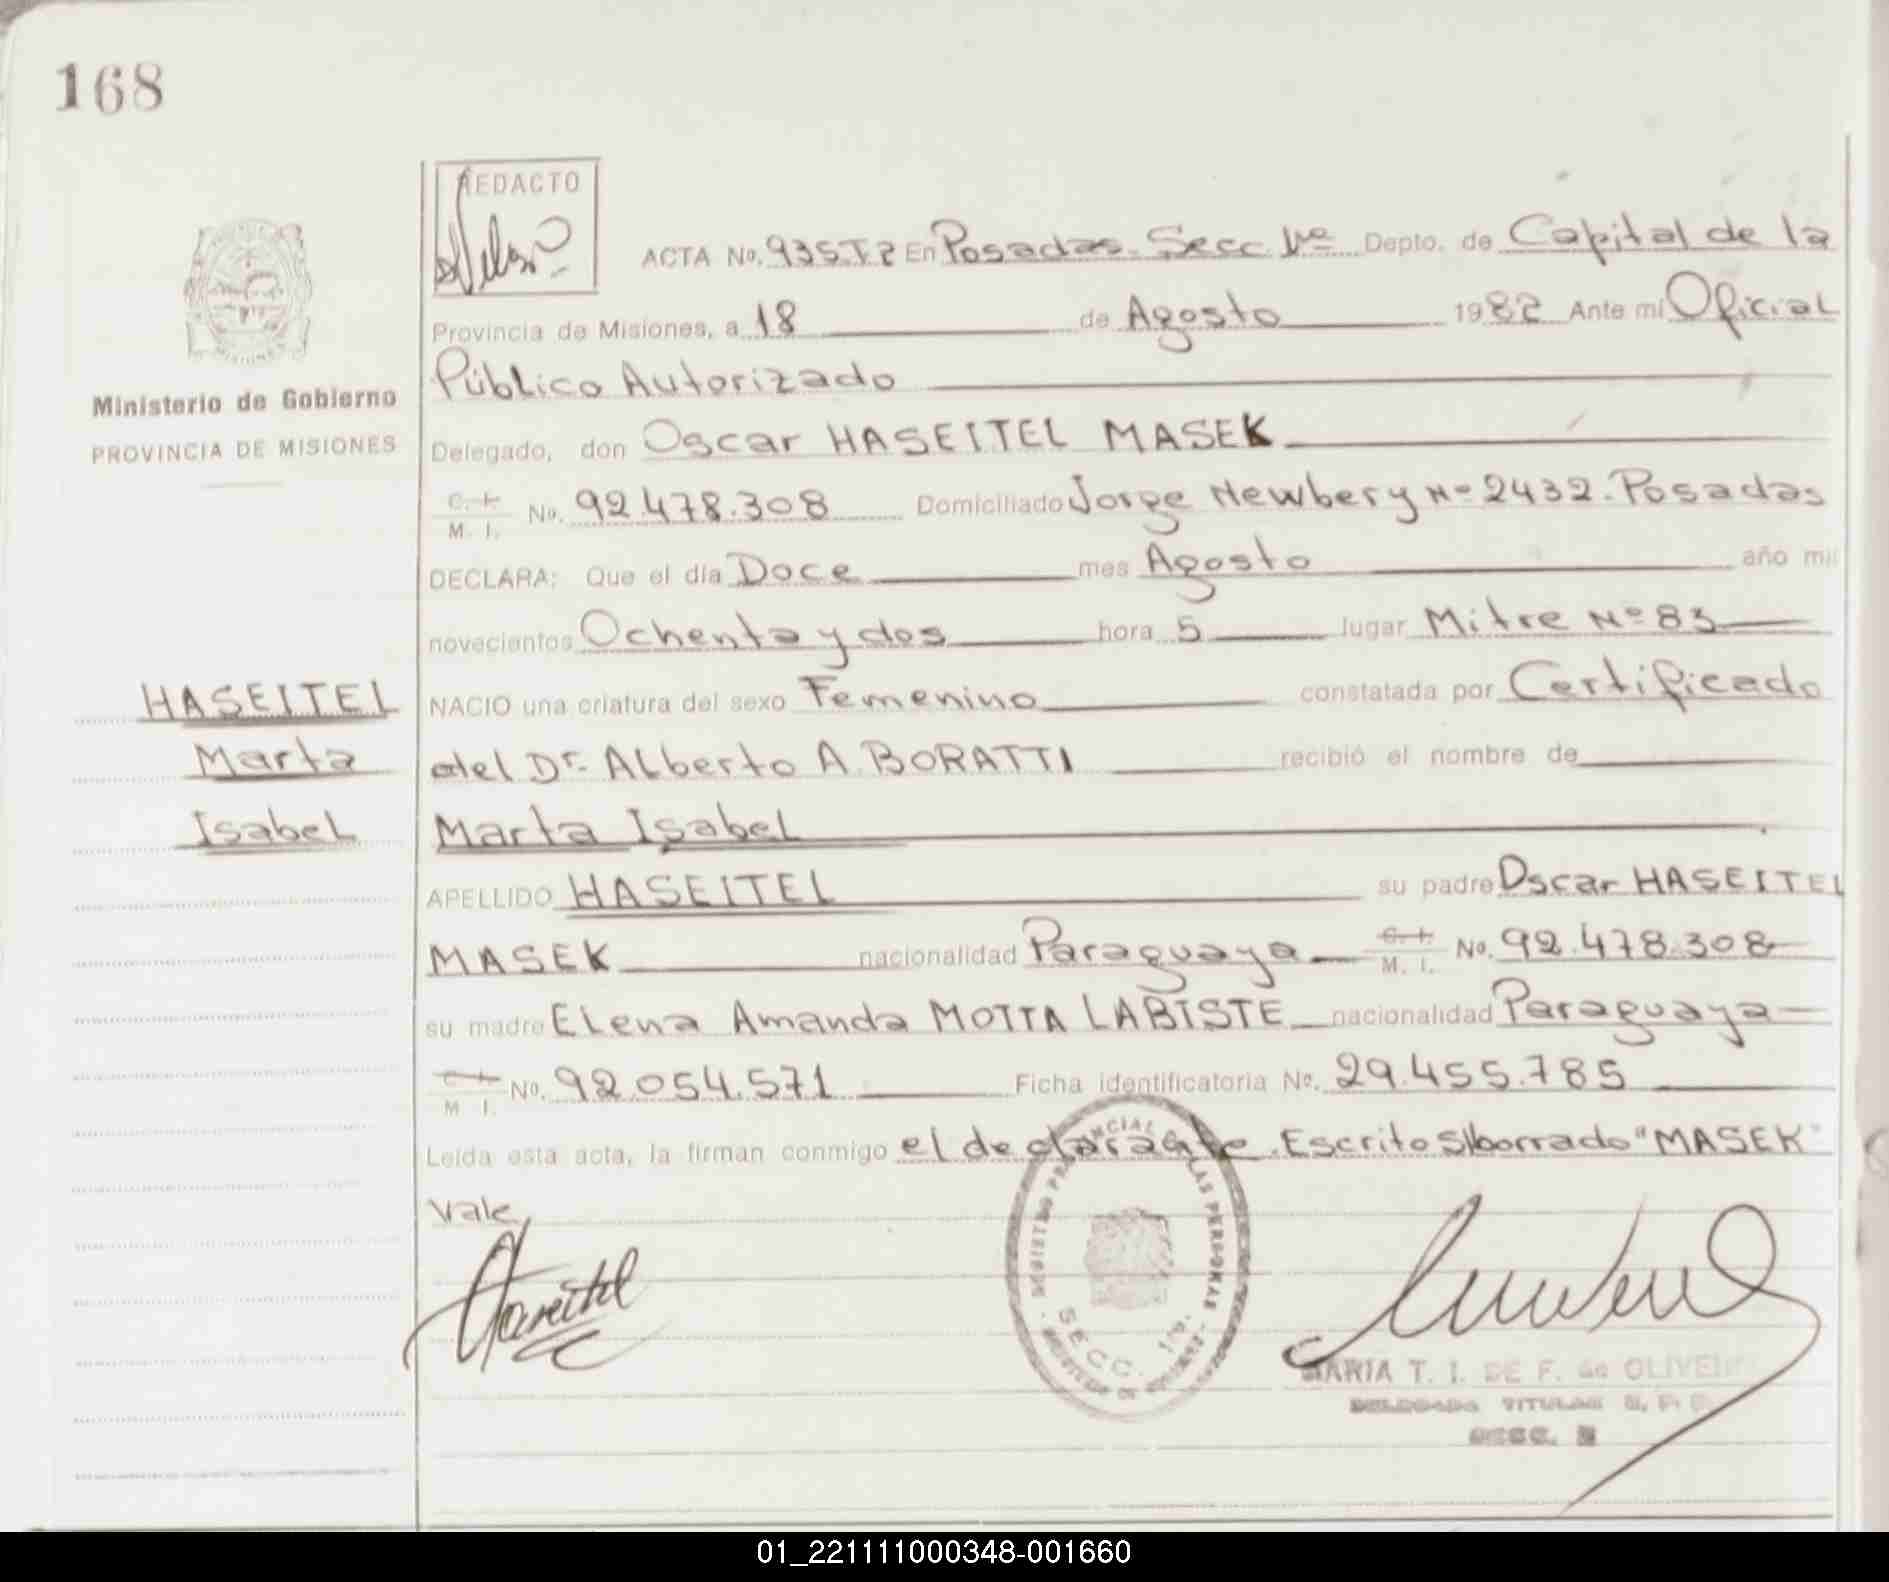 168
REDACTO
ACTA No. 935T2 En Posadas. Secc. 1ra Depto. de Capital de la
Provincia de Misiones, a 18 de Agosto 1982 Ante mi Oficial
Público Autorizado
Ministerio de Gobierno
PROVINCIA DE MISIONES
Delegado, don Oscar HASEITEL MASEK
C. I.
M. I. No. 92.478.308 Domiciliado Jorge Newbery Nº 2432. Posadas
DECLARA: Que el día Doce mes Agosto año mil
novecientos Ochenta y dos hora 5 lugar Mitre Nº 83
HASEITEL
Marta
Isabel
NACIO una criatura del sexo Femenino constatada por Certificado
del Dr. Alberto A. BORATTI recibió el nombre de
Marta Isabel
APELLIDO HASEITEL su padre Oscar HASEITEL
MASEK nacionalidad Paraguaya C. I. M. I. No. 92.478.308
su madre Elena Amanda MOTTA LABISTE nacionalidad Paraguaya
C. I.
M. I. No. 92.054.571 Ficha identificatoria No. 29.455.785
Leída esta acta, la firman conmigo el declarante. Escrito S/borrado "MASEK"
Vale
Haseitel
REGISTRO PROVINCIAL DE LAS PERSONAS
SECC. 1ra.
MARIA T. I. DE F. de OLIVEIRA
DELEGADA TITULAR R. P. P.
SECC.
01_221111000348-001660